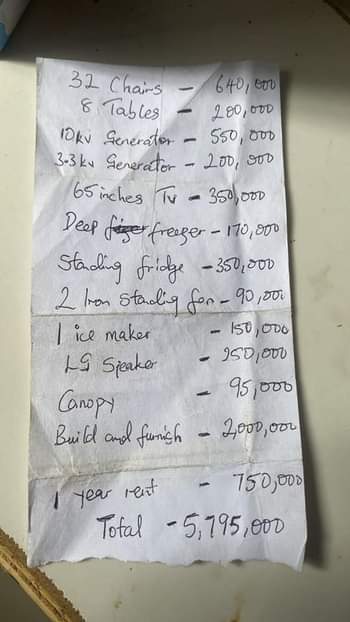 32 Chairs - 640,000
8 Tables - 200,000
10kv Generator - 550,000
3.3kv Generator - 200,000
65 inches Tv - 350,000
Deep freezer - 170,000
Standing fridge - 350,000
2 Iron Standing fan - 90,000
1 ice maker - 150,000
LG Speaker - 250,000
Canopy - 95,000
Build and furnish - 2,000,000
1 year rent - 750,000
Total - 5,795,000